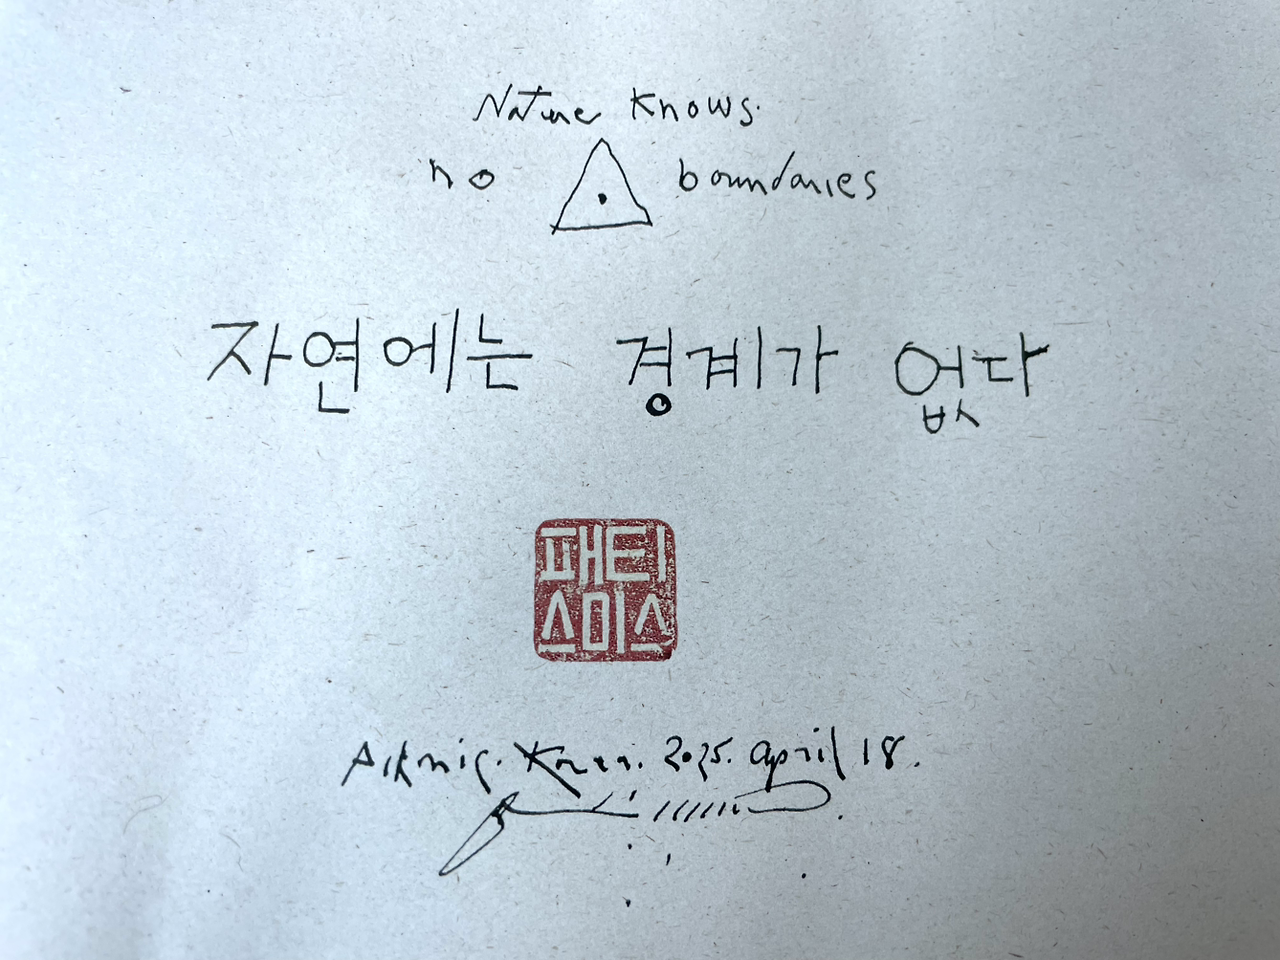 Nature Knows
no boundaries
자연에는 경계가 없다
패티
스미스
Korea. 2025. april 18.